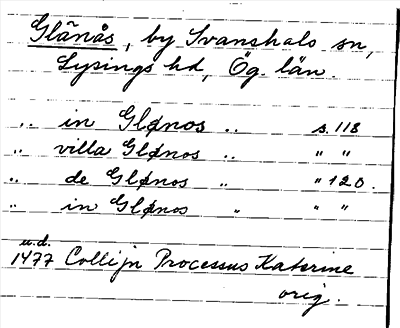 Glänås, by Svanshals sn,
Lysings hd, Ög. län.
.. in Glønos .. s. 118
.. villa Glønos .. " "
.. de Glønos .. " 120.
.. in Glønos .. " "
u.d.
1477 Collijn Processus Katerine
orig.